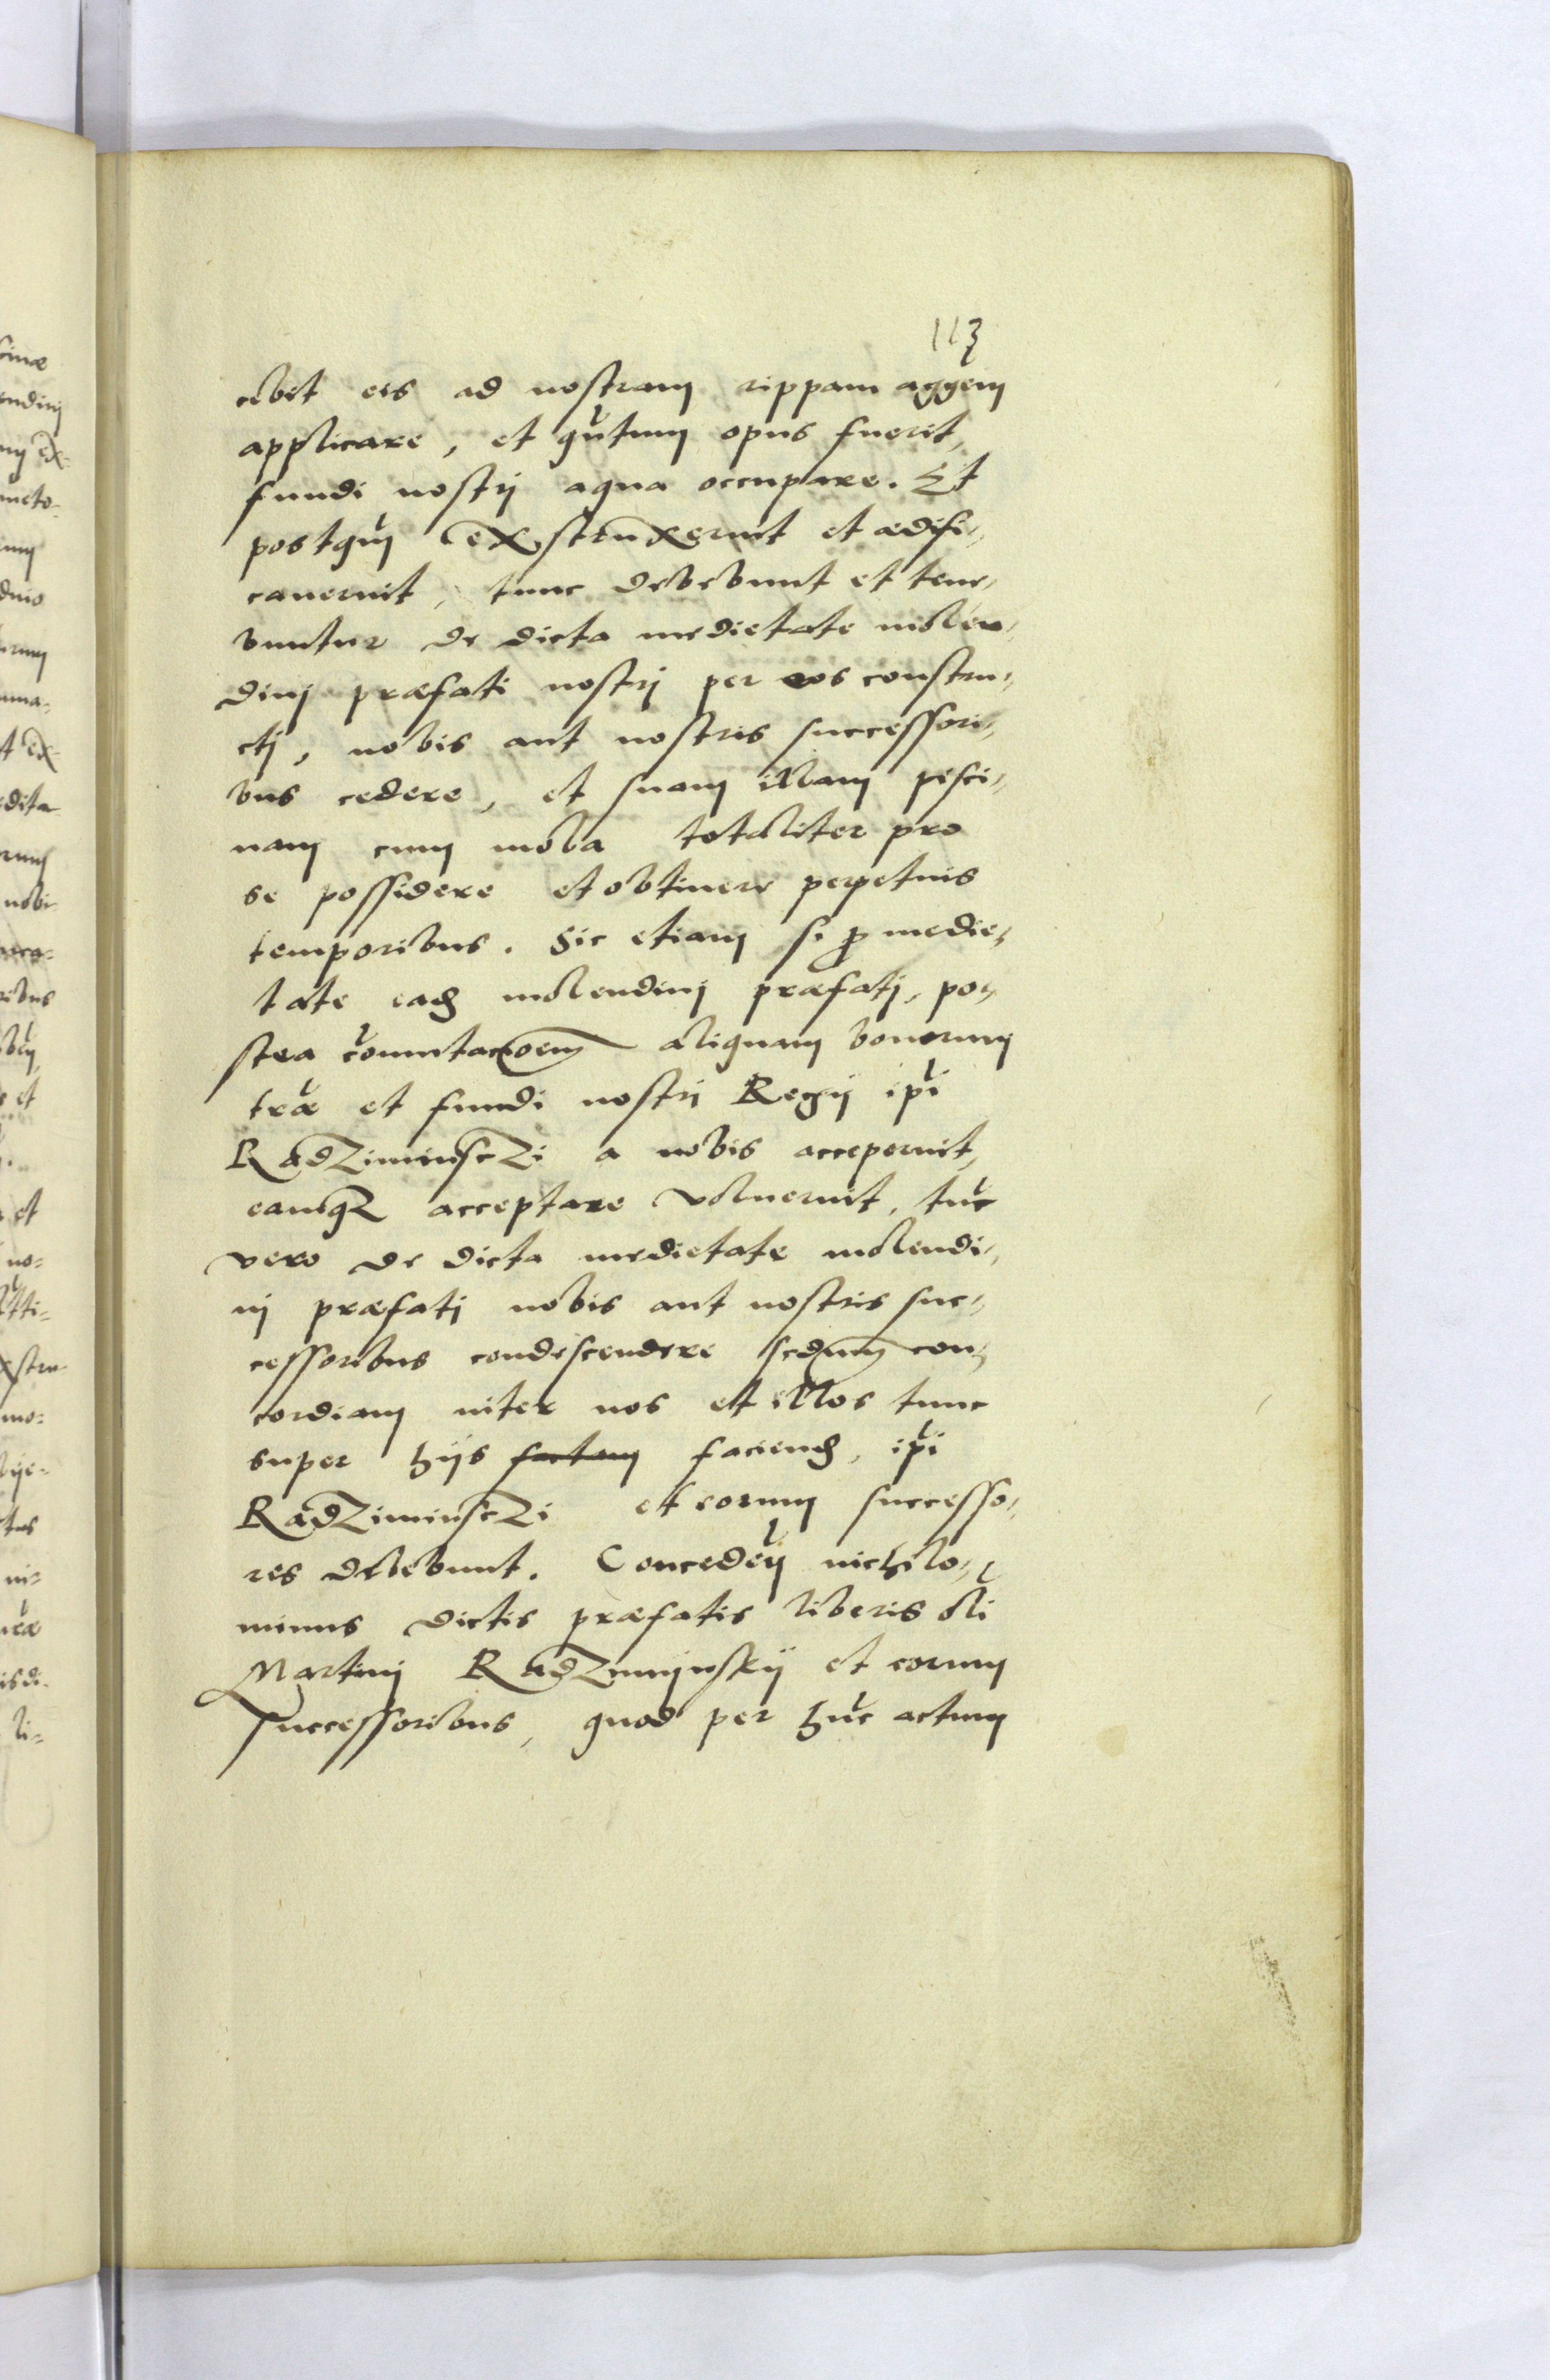 113
cebit eis ad nostram rippam aggerem
applicare, et qũtum opus fuerit,
fundi nostri aqua occupare. Et
postqũ exstruxerint et ædifi-
cauerint, tunc debebunt et tene-
buntur de dicta medietate molen-
dinj præfati nostrj per eos constru-
ctj, nobis aut nostris successori-
bus cedere, et suam illam pisci-
nam cum mola totaliter pro
se possidere et obtinere perpetuis
temporibus. Sic etiam si ꝓ medie-
tate ead molendinj præfatj, po-
stea cõmutacoem aliquam bonorum
træ et fundi nostrj Regÿ ipĩ
Radziminsczi a nobis acceperint,
eamqz acceptare voluerint, tũc
vero de dicta medietate molendi-
nj præfatj nobis aut nostris suc-
cessoribus condescendere scdum con-
cordiam inter nos et illos tunc
super hÿs factam faciend, ipĩ
Radziminsczi et eorum successo-
res debebunt. Concedeũ nichilo-
minus dictis præfatis liberis oli
Martinj Radziminskÿ et eorum
successoribus, quod per hũc actum